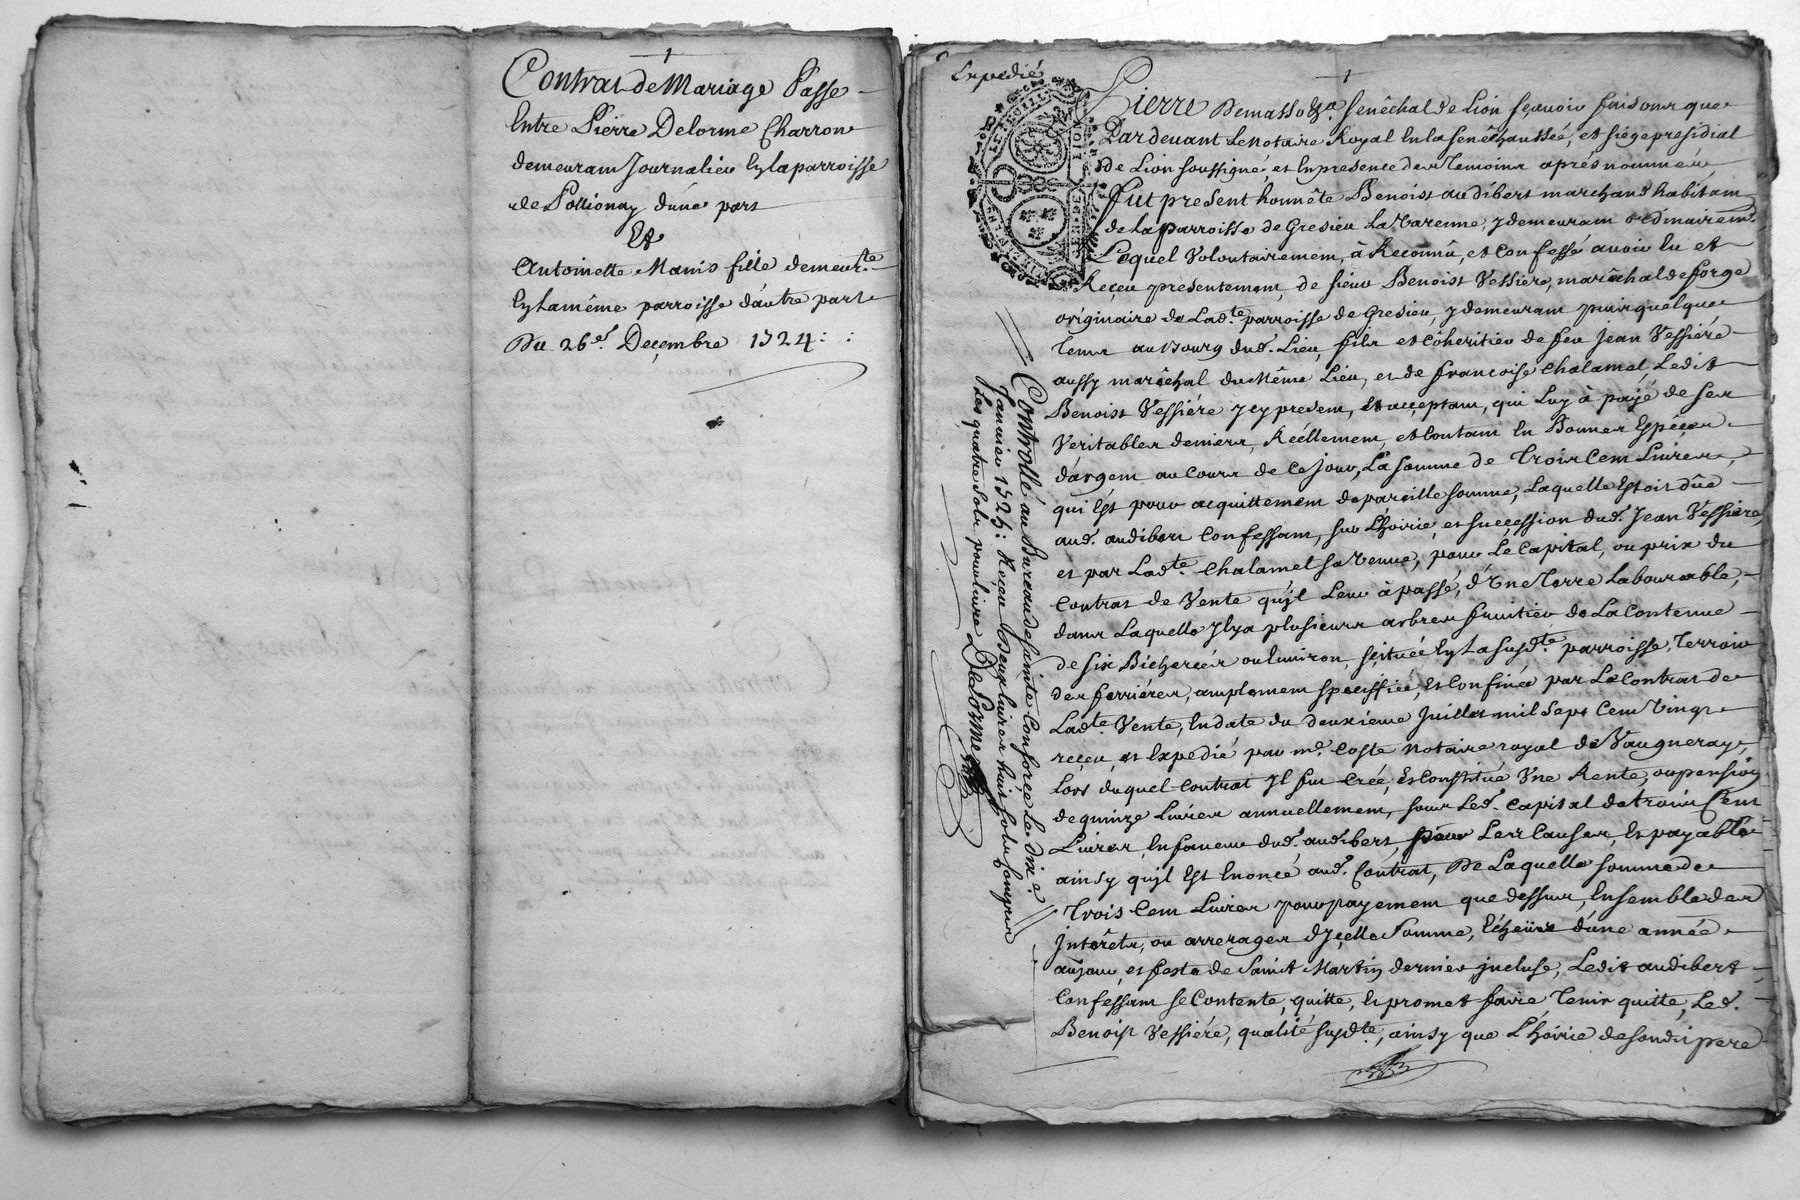 Contrat de Mariage Passe
Entre Pierre Delorme Charron
demeurant Journalieu En la parroisse
de Pollionay d'une part
Et
Antoinette Manis fille demeur.te
En la même parroisse d'autre part
Du 26e. Decembre 1724 :
Expedié
Pierre Demasso &a. senêchal de Lion sçavoir faisons que
Pardevant Le notaire Royal En la senêchaussée, et siége presidial
de Lion soussigné, et En presence des Temoins aprés nommés
fut present honnête Benoist audibert marchand habitant
de la parroisse de Gresieu La Varenne, y demeurant ordinairemt.
Lequel Volontairement, à Reconnû, et Confessé avoir Eu et
Reçeu presentement, de sieur Benoist Vessiére, marêchal de forge
originaire de Lad.te parroisse de Gresieu, y demeurant puis quelque
Tems au Bourg dud. Lieu, fils et Cohéritier de feu Jean Vessiére
aussy marêchal du Même Lieu, et de francoise Chalamel, Ledit
Benoist Vessiére Icy present, et acceptant, qui Luy à payé de ses
Veritables deniers, Réellement, et Contant En Bonnes Espêces
d'argent au Cours de Ce jour, La somme de Trois Cent Livres,
qui Est pour acquittement de pareille somme, Laquelle Estoit dûe
aud. audibert Confessant, sur L'hoirie, et succession dud. Jean Vessiére,
et par Lad.te Chalamel sa Veuve, pour Le Capital, ou prix du
Contrat de Vente qu'jl Leur à passé, d'Une Terre Labourable,
dans Laquelle Jl y a plusieurs arbres fruitier de La Contenue
de six Bicherées ou Environ, scituée En La susd.te parroisse, Terroir
des ferriéres, amplement speciffiée, et Confinée par Le Contrat de
Lad.te Vente, En date du deuxieme Juillet mil Sept Cent Vingt
reçeu, et Expedié par me. Coste notaire royal de Vaugneray,
Lors duquel Contrat Jl fut Créé, et Constitué Une Rente, ou pension
de quinze Livres annuellement, sous Led. Capital de trois Cent
Livres, En faveur dud. audibert, pour Les Causes, Et payable
ainsy qu'jl Est Enoncé aud. Contrat, De Laquelle somme de
Trois Cent Livres pour payement que dessus, Ensemble des
jnterêts, ou arrerages d'jçelle Somme, Echeües d'une année
au jour, et feste de Saint Martin dernier jncluse, Ledit audibert
Confessant se Contente, quitte, Et promet faire Tenir quitte, Led.
Benoist Vessiére, qualité susd.te, ainsy que L'hoirie de sondit pere
Controllé au Bureau de Sainte Conforce Le dix e.
Janvier 1725 : Réçeu Deux livres huit sols Compris
Les quatre sols pour livre Delorme